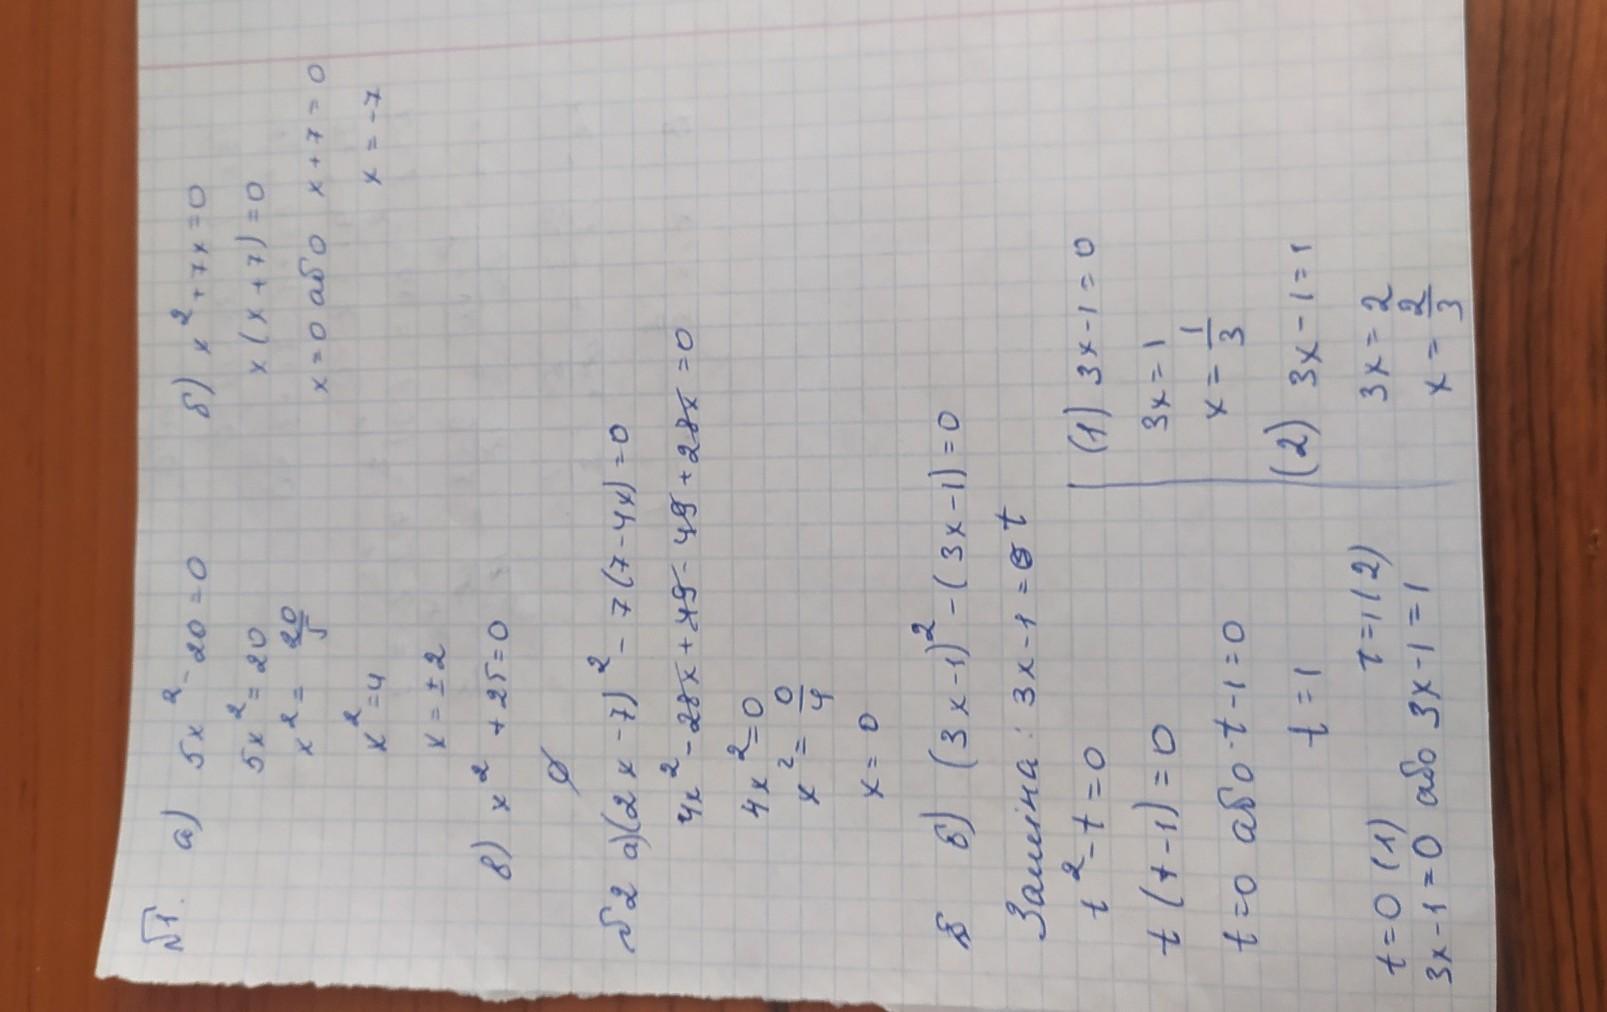 №1. а) 5x² - 20 = 0
5x² = 20
x² = 20/5
x² = 4
x = ± 2
б) x² + 7x = 0
x(x + 7) = 0
x = 0 або x + 7 = 0
x = -7
в) x² + 25 = 0
∅
№2 а) (2x - 7)² - 7(7 - 4x) = 0
4x² - 28x + 49 - 49 + 28x = 0
4x² = 0
x² = 0/4
x = 0
б) (3x - 1)² - (3x - 1) = 0
Заміна: 3x - 1 = t
t² - t = 0
t(t - 1) = 0
t = 0 або t - 1 = 0
t = 1
t = 0 (1) t = 1 (2)
3x - 1 = 0 або 3x - 1 = 1
(1) 3x - 1 = 0
3x = 1
x = 1/3
(2) 3x - 1 = 1
3x = 2
x = 2/3